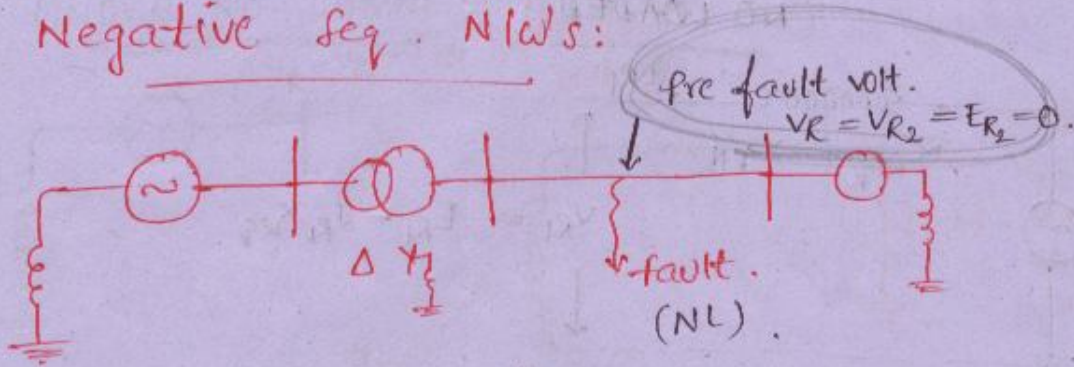 Negative Seq. N/W's:
Pre fault volt.
VR = VR2 = ER2 = 0.
~
Δ Y
fault.
(NL).